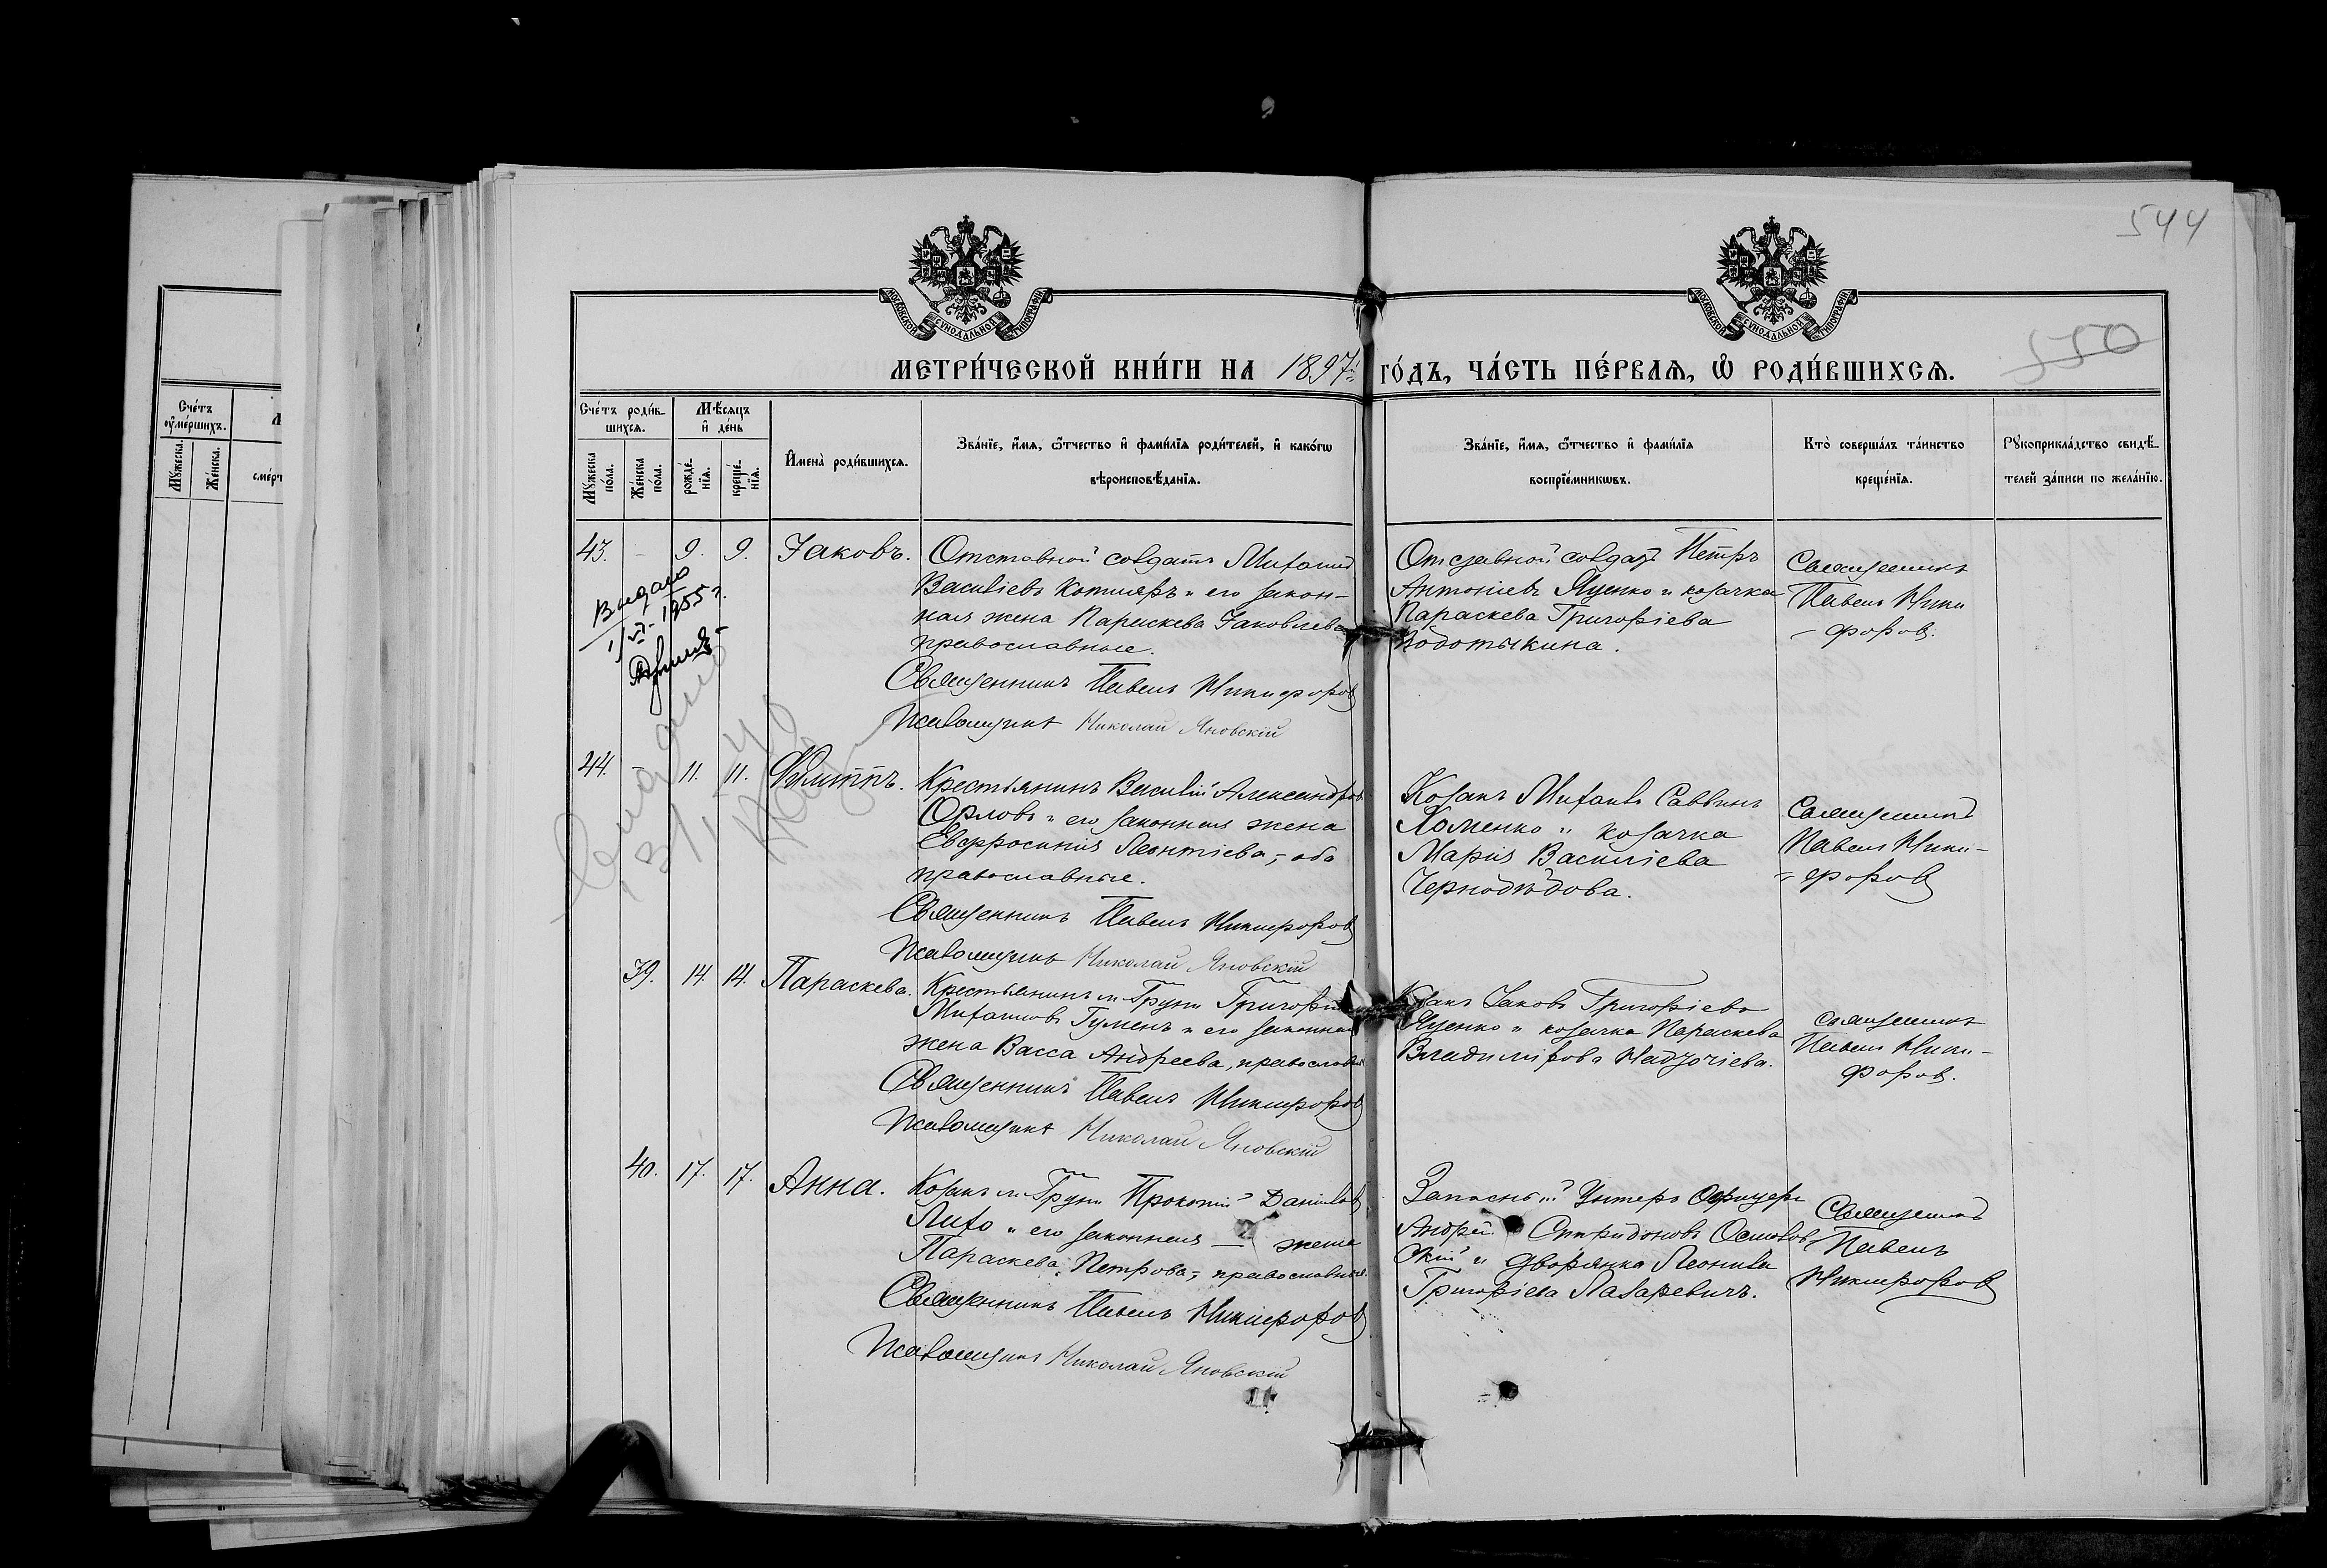 544
МОСКОВСКОЙ СУНОДАЛЬНОЙ ТИПОГРАФІИ
МОСКОВСКОЙ СУНОДАЛЬНОЙ ТИПОГРАФІИ
550
МЕТРИ́ЧЕСКОЙ КНИ́ГИ НА 1897 ГО́ДЪ, ЧА́СТЬ ПЕ́РВАЯ, Ѽ РОДИ́ВШИХСЯ.
Сче́тъ ᲂу҆ме́ршихъ.
Му́жеска.
Же́нска.
Сче́тъ роди́вшихся.
Му́жеска по́ла.
Же́нска по́ла.
Мѣ́сяцъ и҆ де́нь
рожде́нїя.
креще́нїя.
И҆мена̀ роди́вшихся.
Зва́нїе, и҆́мя, ѻ҆́тчество и҆ фами́лїя роди́телей, и҆ како́гѡ
вѣроисповѣ́данїя.
Зва́нїе, и҆́мя, ѻ҆́тчество и҆ фами́лїя
воспрїе́мникѡвъ.
Кто̀ соверша́лъ та́инство
креще́нїя.
Рꙋкоприкла́дство свидѣ́-
телей за́писи по жела́нїю.
43. - 9. 9. Іаковъ.
Отставной солдатъ Михаилъ
Васильевъ и его закон-
ная жена Параскева Іаковлева
православные.
Священникъ Павелъ Никифоровъ
Псаломщикъ Николай Яновскій
Отставной солдатъ Петръ
Антоніевъ Яценко и козачка
Параскева Григоріева
Священникъ
Павелъ Ники
-форовъ.
Выдано
1/VI-1955 г.
44. - 11. 11. Филиппъ.
Крестьянинъ Василій Александровъ
Орловъ и его законная жена
Евфросинія Леонтіева, - оба
православные.
Священникъ Павелъ Никифоровъ
Псаломщикъ Николай Яновскій
Козакъ Михаилъ Саввинъ
Хоменко и козачка
Марія Василіева
Чернодѣдова.
Священникъ
Павелъ Ники-
=форовъ
39. 14. 14. Параскева.
Крестьянинъ м. Груни Григорій
Михаиловъ Гуменъ и его законная
жена Васса Андреева, православные
Священникъ Павелъ Никифоровъ
Псаломщикъ Николай Яновскій
Козакъ Іаковъ Григоріевъ
Яценко и козачка Параскева
Владимірова
Священникъ
Павелъ Ники-
форовъ.
40. 17. 17. Анна.
Козакъ м. Груни Прокопій Даніиловъ
Лихо и его законная — жена
Параскева Петрова, - православные.
Священникъ Павелъ Никифоровъ
Псаломщикъ Николай Яновскій
Запасный Унтеръ Офицеръ
Андрей Спиридоновъ Осиповъ
скій и дворянка Леонила
Григоріева Лазаревичъ.
Священникъ
Павелъ
Никифоровъ